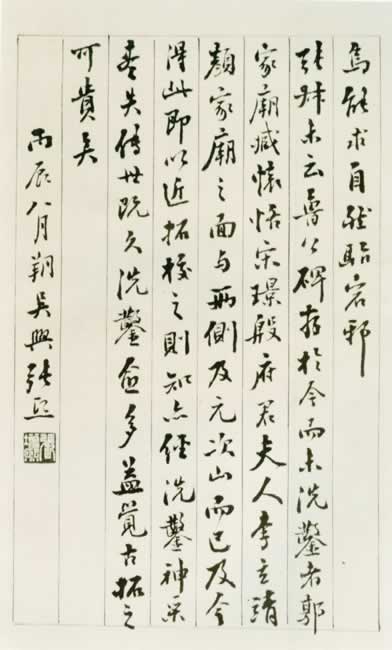 焉能求自宕邪
張叔未云魯公碑存於今而未洗鑿者郭
家廟臧懷恪宋璟殷府君夫人李玄靖
顏家廟之面與兩側及元次山而已及今
得此即以近拓校之則知亦經洗鑿神采
盡失傳世既久洗鑿愈多益覺古拓之
可貴矣
丙辰八月朔吳興張熙